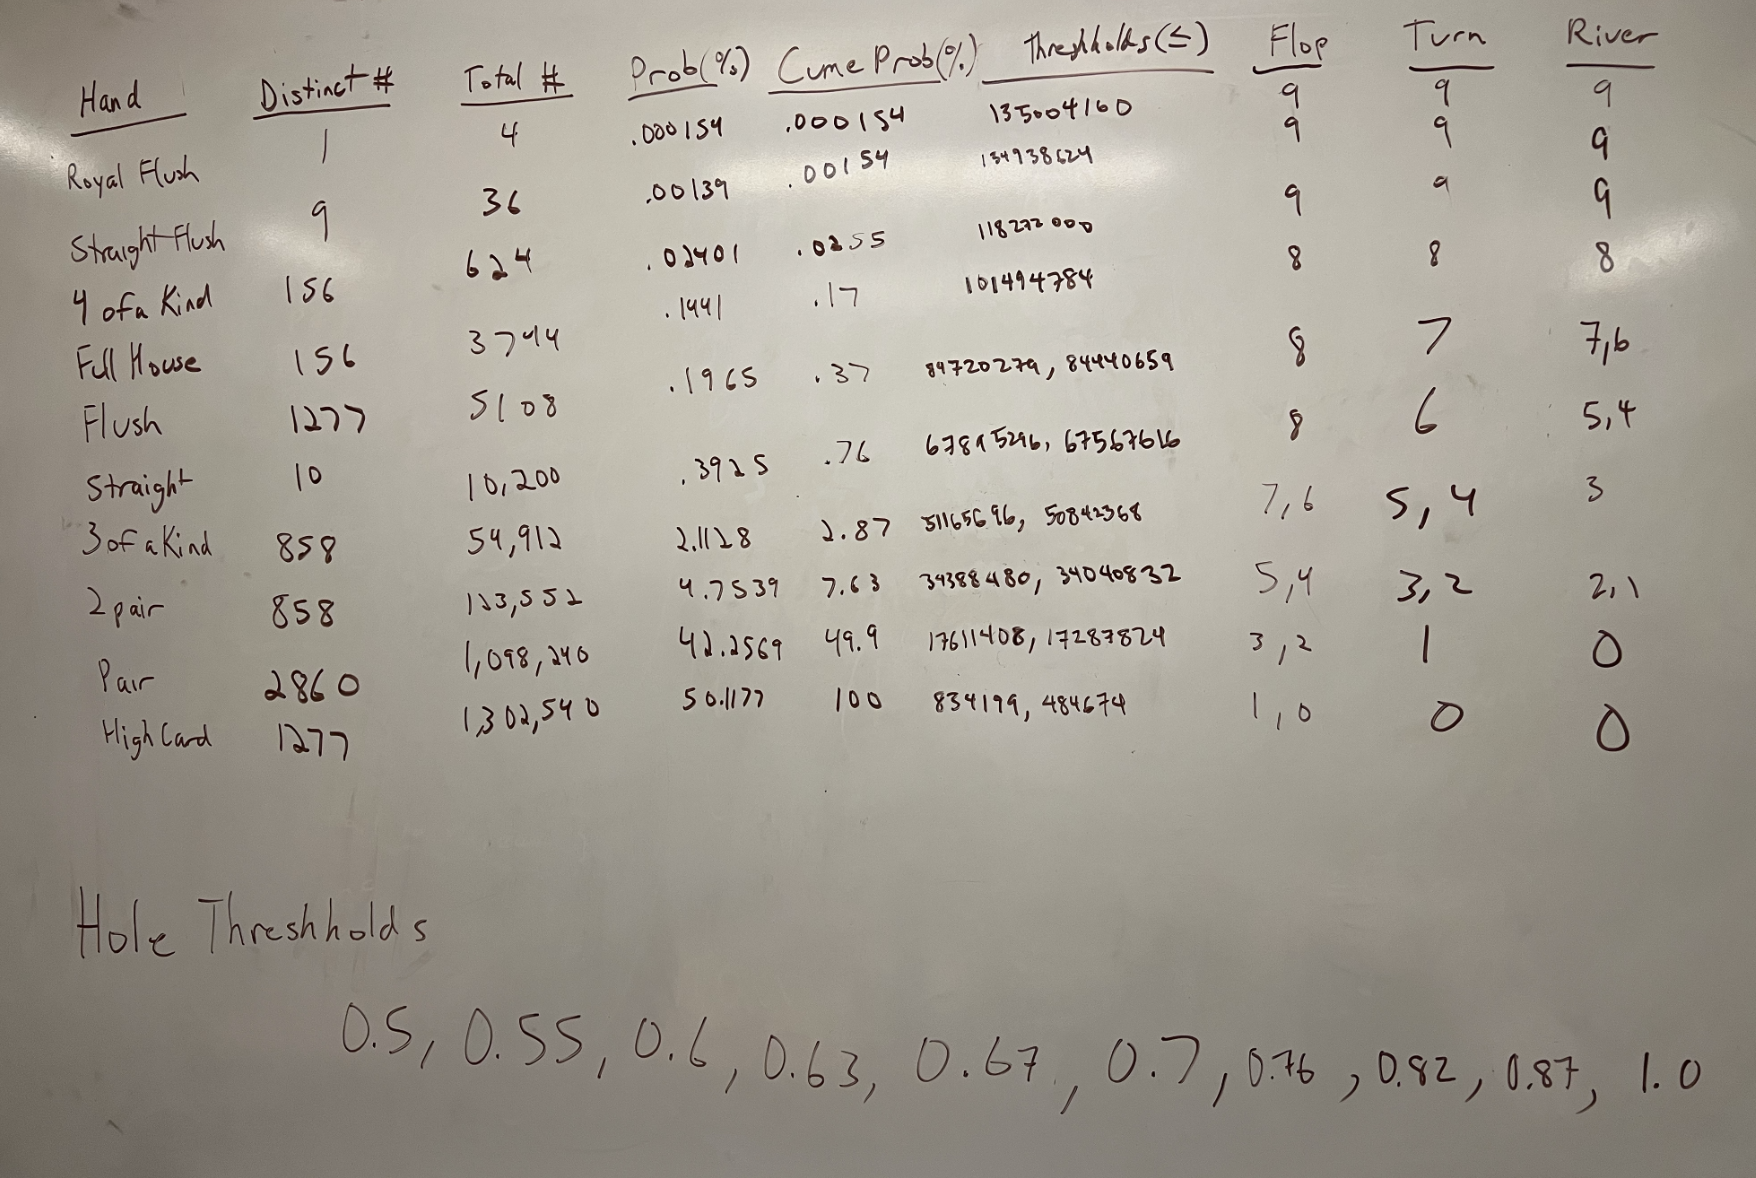 Hand Distinct # Total # Prob(%) Cume Prob(%) Threshholds(≤) Flop Turn River
Royal Flush 1 4 .000154 .000154 135004160 9 9 9
Straight Flush 9 36 .00139 .00154 134938624 9 9 9
4 of a Kind 156 624 .02401 .0255 118272000 9 9 9
Full House 156 3744 .1441 .17 101494784 8 8 8
Flush 1277 5108 .1965 .37 84720279, 84440659 8 7 7,6
Straight 10 10,200 .3925 .76 67895296, 67567616 8 6 5,4
3 of a Kind 858 54,912 2.1128 2.87 51165696, 50842368 7,6 5,4 3
2 pair 858 123,552 4.7539 7.63 34388480, 34040832 5,4 3,2 2,1
Pair 2860 1,098,240 42.2569 49.9 17611408, 17287824 3,2 1 0
High Card 1277 1,302,540 50.1177 100 834199, 484674 1,0 0 0
Hole Threshholds
0.5, 0.55, 0.6, 0.63, 0.67, 0.7, 0.76, 0.82, 0.87, 1.0